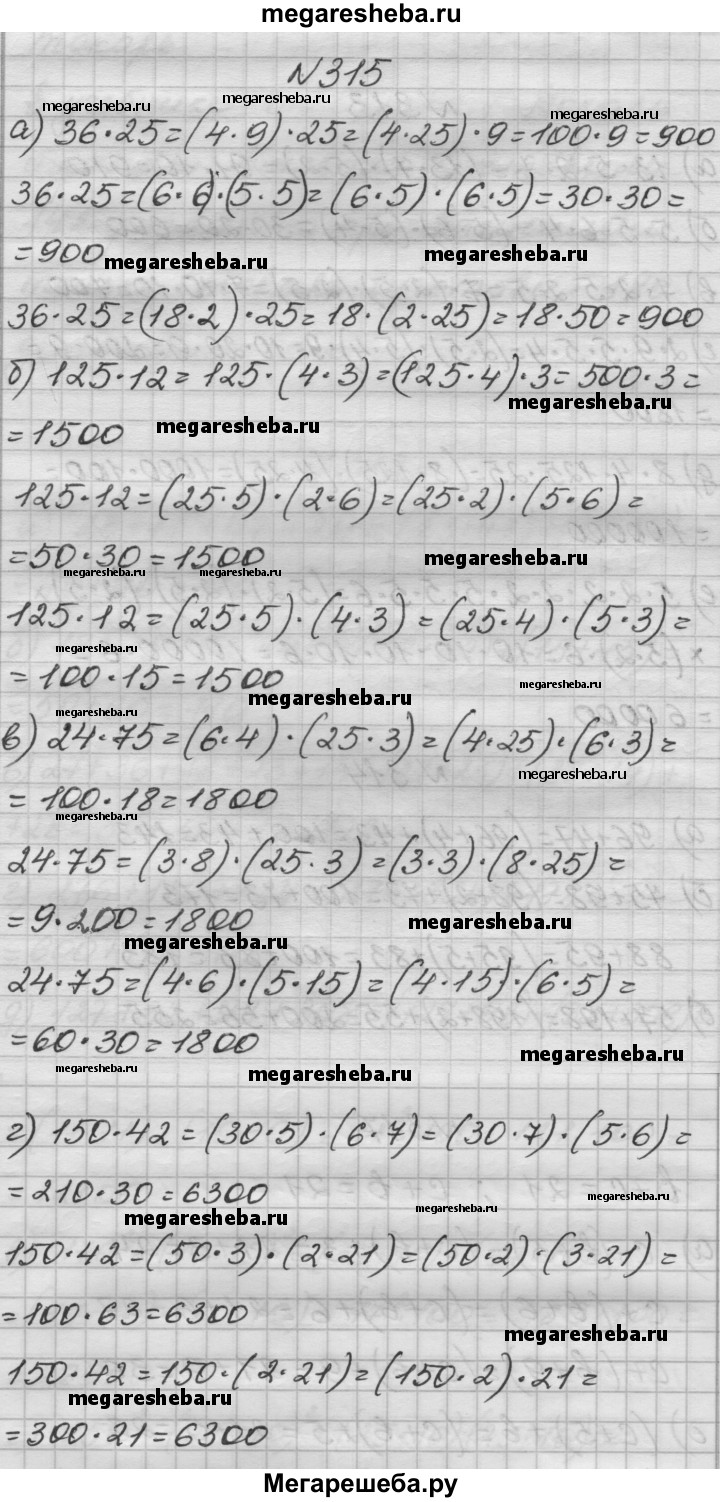 megaresheba.ru
N 315
megaresheba.ru megaresheba.ru megaresheba.ru
а) 36·25=(4·9)·25=(4·25)·9=100·9=900
36·25=(6·6)·(5·5)=(6·5)·(6·5)=30·30=
=900
megaresheba.ru megaresheba.ru
36·25=(18·2)·25=18·(2·25)=18·50=900
б) 125·12=125·(4·3)=(125·4)·3=500·3=
megaresheba.ru
=1500 megaresheba.ru
125·12=(25·5)·(2·6)=(25·2)·(5·6)=
=50·30=1500 megaresheba.ru
megaresheba.ru megaresheba.ru
125·12=(25·5)·(4·3)=(25·4)·(5·3)=
megaresheba.ru
=100·15=1500 megaresheba.ru megaresheba.ru
megaresheba.ru
в) 24·75=(6·4)·(25·3)=(4·25)·(6·3)=
megaresheba.ru
=100·18=1800
megaresheba.ru
24·75=(3·8)·(25·3)=(3·3)·(8·25)=
=9·200=1800 megaresheba.ru
megaresheba.ru
24·75=(4·6)·(5·15)=(4·15)·(6·5)=
=60·30=1800 megaresheba.ru
megaresheba.ru megaresheba.ru
г) 150·42=(30·5)·(6·7)=(30·7)·(5·6)=
=210·30=6300 megaresheba.ru megaresheba.ru
megaresheba.ru
150·42=(50·3)·(2·21)=(50·2)·(3·21)=
=100·63=6300
megaresheba.ru
150·42=150·(2·21)=(150·2)·21=
megaresheba.ru megaresheba.ru
=300·21=6300
Мегарешеба.ру